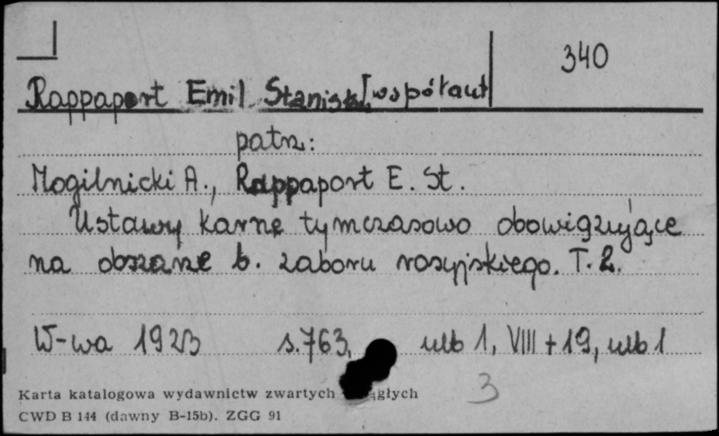 340
Rappaport Emil Stanisł. [współaut
patrz:
Mogilnicki A., Rappaport E. St.
Ustawy karne tymczasowo obowiązujące
na obszarze b. zaboru rosyjskiego. T. 2.
W-wa 1923 s. 763, ulb 1, VIII + 19, ulb 1
Karta katalogowa wydawnictw zwartych ągłych
CWD B 144 (dawny B-15b). ZGG 91
3